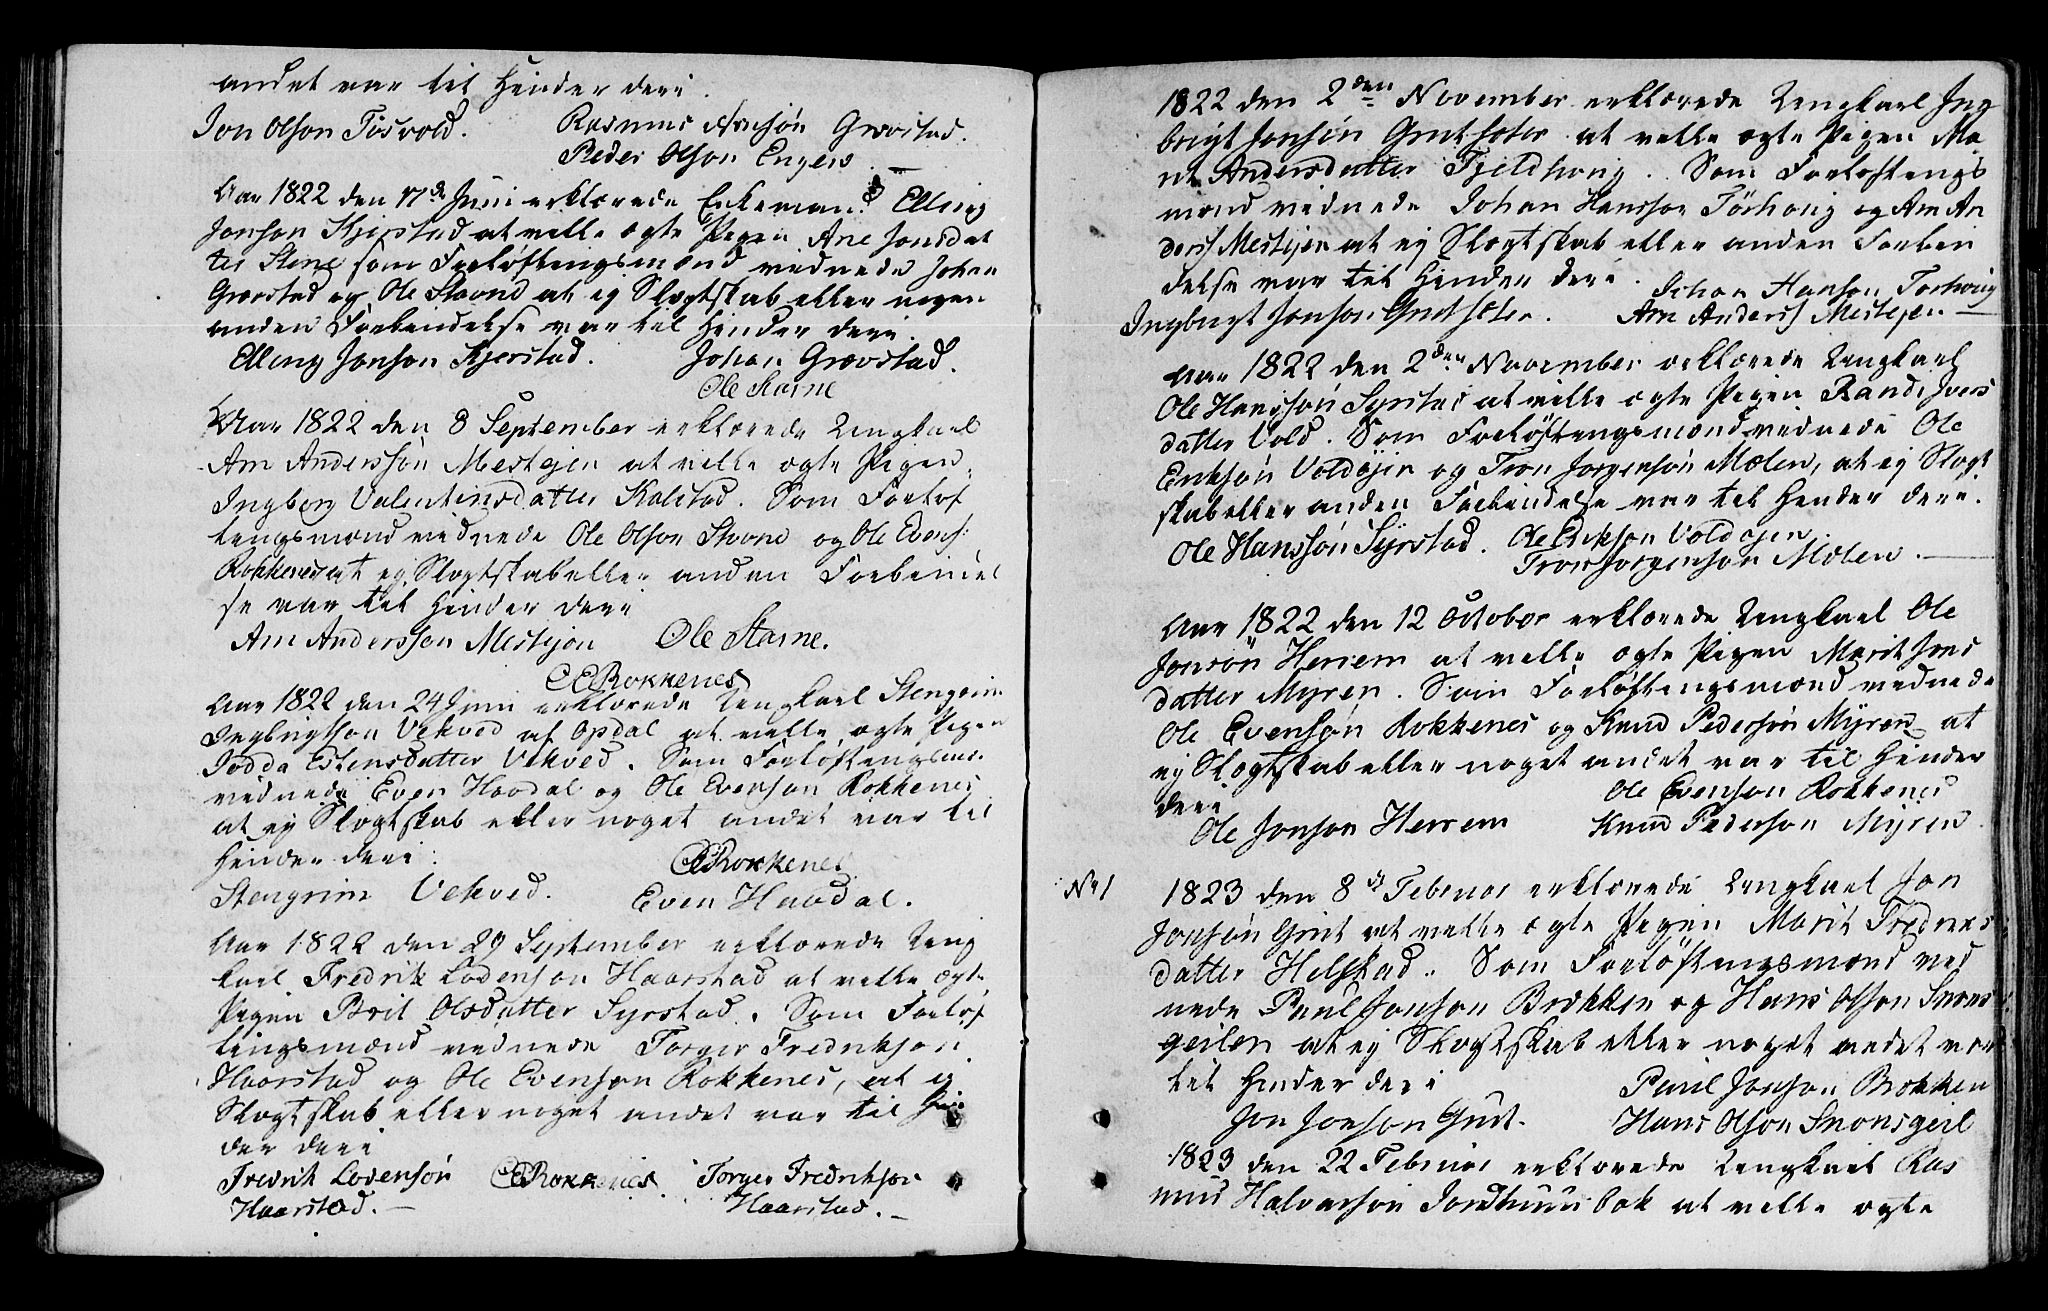 andet var til Hinder deri.
Jon Olson Tosvold. Rasmus Arnsön Grøvstad.
Peder Olson Engen
Aar 1822 den 17de Juni erklærede Enkemand Elling
Jonson Kjerstad at ville ægte Pigen Ane Jonsdat
ter Stene som Forløftingsmænd vednede Johan
Grøvstad og Ole Stavne at ej Slægtskab eller nogen
anden Forbindelse var til Hinder deri.
Elling Jonson Kjerstad. Johan Grøvstad.
Ole Stavne
Aar 1822 den 8 September erklærede Ungkarl
Arn Andersøn Mestejen at ville ægte Pigen
Ingborg Valentinsdatter Kalstad. Som Forløf
tingsmænd vednede Ole Olson Stavne og Ole Evens:
Rokkenes at ej Slægtskab eller anden Forbendel
se var til Hinder deri
Arn Anderson Mestejen Ole Starne.
OERokkenes
Aar 1822 den 24 Juni erklærede Ungkarl Stengrim
Ingbrigtson Vekved af Opdal at ville ægte Pigen
Jodda Estensdatter Vekved. Som Forløftingsm:
vednede Even Havdal og Ole Evenson Rokkenes
at ej Slægtskab eller noget andet var til
Hinder deri.
OERokkenes
Stengrim Vekved. Even Havdal.
Aar 1822 den 29 September erklærede Ung
karl Fredrik Lodenson Haarstad at ville ægte
Pigen Brit Olsdatter Syrstad. Som Forløf
tingsmænd vednede Torger Fredrikson
Haarstad og Ole Evenson Rokkenes, at ej
Slægtskab eller noget andet var til Hin
der deri
Fredrik Lodensön OERokkenes. Torger Fredrikson
Haarstad. Haarstad.
1822 den 2den November erklærede Ungkarl Ing
brigt Jonsön Grutseter at ville ægte Pigen Ma
rit Andersdatter Fjeldhoug. Som Forløftings
mænd vednede Johan Hansson Törhoug og Arn An
ders: Mestejen at ej Slægtskab eller anden Forbin
delse var til Hinder deri.
Johan Hanson Torhoug
Ingbrigt Jonson Grutseter. Arn Anders: Mestejen
Aar 1822 den 2den November erklærede Ungkarl
Ole Hansson Syrstad at ville ægte Pigen Randi Ivers
datter Vold. Som Forløftingsmænd vednede Ole
Eriksön Voldöjen og Tron Jorgensön Mælen, at ej Slægt
skab eller anden Forbendelse var til Hinder deri.
Ole Hanssön Syrstad. Ole Erikson Voldojen
Tron Jorgenson Mælen.
Aar 1822 den 12 October erklærede Ungkarl Ole
Jonsön Herrem at ville ægte Pigen Marit Jons
datter Myren. Som Forløftingsmænd vednede
Ole Evensön Rokkenes og Knud Pedersön Myren at
ej Slægtskab eller noget andet var til Hinder
deri
Ole Evenson Rokkenes
Ole Jonson Herrem Knud Pederson Myren
No 1 1823 den 8de Februar erklærede Ungkarl Jon
Jonsön Grut at ville ægte Pigen Marit Fredriks
datter Helstad. Som Forløftingsmænd ved
nede Paul Jonson Brækken og Hans Olson Snøns
geilen at ej Slægtskab eller noget andet var
til Hinder deri
Paul Jonson Brækken
Jon Jonson Grut. Hans Olson Snonsgeil
1823 den 22 Februar erklærede Ungkarl Ras
mus Halvorson Jordhuusbæk at ville ægte